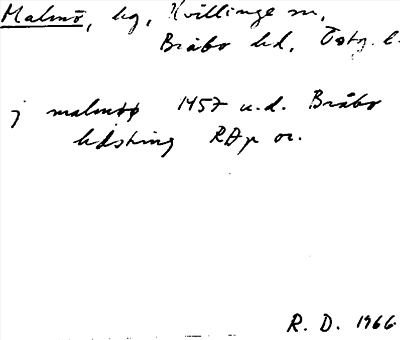 Malmö, hg, Kvillinge sn,
Bråbo hd, Östg. l.
j malmöø 1457 u.d. Bråbo
hdsting RAp or.
R. D. 1966